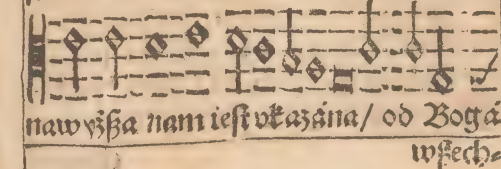 nawyżßa nam ieſt vkazána/ od Boga
wßech⸗